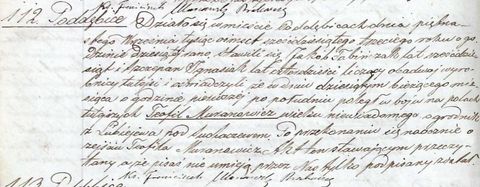 112. Poddębice Działo się w mieście Poddębicach dnia piętna-
stego Września tysiąc ośmset sześćdziesiątego trzeciego roku o go-
dzinie dziewiątej rano, stawili się, Jakób Tobin lat sześćdzie-
siąt i Szczepan Ignasiak lat czterdzieści liczący obadwaj wyro-
bnicy tutejsi i oświadczyli że w dniu dziesiątym bieżącego mie-
siąca o godzinie pierwszej po południu poległ w boju na polach
tutejszych Teofil Muranowicz wieku niewiadomego ogrodnik
z Lubiejewa pod Sochaczewem. Po przekonaniu się naocznie o
zejściu Teofila Muranowicz Akt ten stawającym przeczy-
tany a że pisać nie umieją przez Nas tylko podpisany został.
Ks. Franciszek
113.